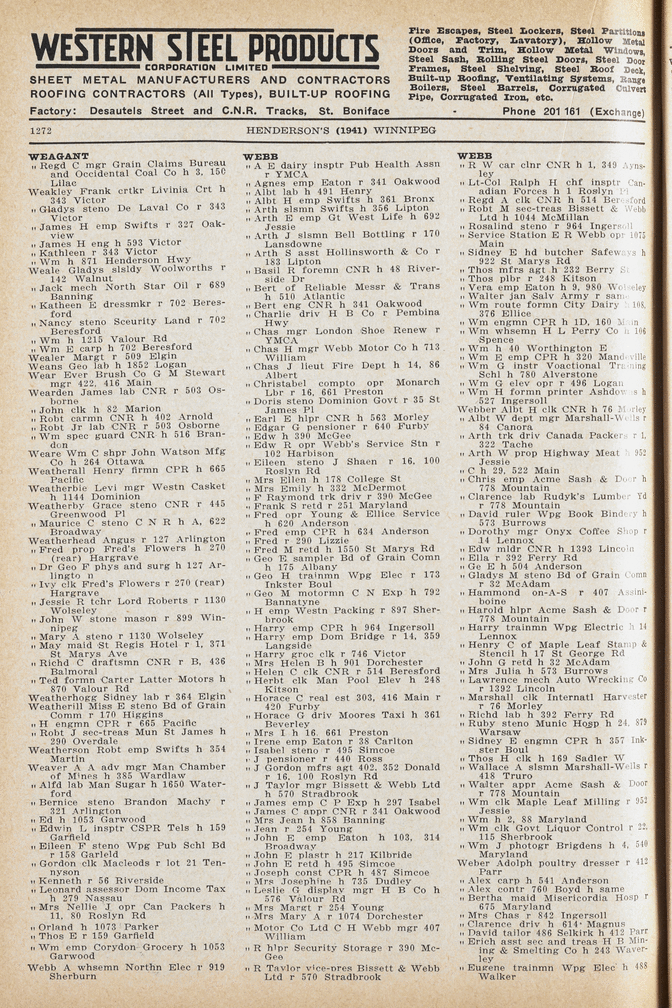 WESTERN STEEL PRODUCTS
CORPORATION LIMITED
SHEET METAL MANUFACTURERS AND CONTRACTORS
ROOFING CONTRACTORS (All Types), BUILT-UP ROOFING
Fire Escapes, Steel Lockers, Steel Partitions
(Office, Factory, Lavatory), Hollow Metal
Doors and Trim, Hollow Metal Windows,
Steel Sash, Rolling Steel Doors, Steel Door
Frames, Steel Shelving, Steel Roof Deck,
Built-up Roofing, Ventilating Systems, Range
Boilers, Steel Barrels, Corrugated Culvert
Pipe, Corrugated Iron, etc.
Factory: Desautels Street and C.N.R. Tracks, St. Boniface - Phone 201 161 (Exchange)
1272 HENDERSON'S (1941) WINNIPEG
WEAGANT
" Regd C mgr Grain Claims Bureau
and Occidental Coal h 3, 150
Lilac
Weakley Frank crtkr Livinia Crt h
343 Victor
" Gladys steno De Laval Co r 343
Victor
" James H emp Swifts r 327 Oak-
view
" James H eng h 593 Victor
" Kathleen r 343 Victor
" Wm h 871 Henderson Hwy
Weale Gladys slsldy Woolworths r
142 Walnut
" Jack mech North Star Oil r 689
Banning
" Katheen E dressmkr r 702 Beres-
ford
" Nancy steno Sceurity Land r 702
Beresford
" Wm h 1215 Valour Rd
" Wm E carp h 702 Beresford
Wealer Margt r 509 Elgin
Weans Geo lab h 1852 Logan
Wear Ever Brush Co G M Stewart
mgr 422, 416 Main
Wearden James lab CNR r 503 Os-
borne
" John clk h 82 Marion
" Robt carmn CNR h 402 Arnold
" Robt Jr lab CNR r 503 Osborne
" Wm spec guard CNR h 516 Bran-
don
Weare Wm C shpr John Watson Mfg
Co h 264 Ottawa
Weatherall Henry firmn CPR h 665
Pacific
Weatherbie Levi mgr Westn Casket
h 1144 Dominion
Weatherby Grace steno CNR r 445
Greenwood Pl
" Maurice C steno C N R h A, 622
Broadway
Weatherhead Angus r 127 Arlington
" Fred prop Fred's Flowers h 270
(rear) Hargrave
" Dr Geo F phys and surg h 127 Ar-
lington
" Ivy clk Fred's Flowers r 270 (rear)
Hargrave
" Jessie R tchr Lord Roberts r 1130
Wolseley
" John W stone mason r 899 Win-
nipeg
" Mary A steno r 1130 Wolseley
" May maid St Regis Hotel r 1, 371
St Marys Ave
" Richd C draftsmn CNR r B, 436
Balmoral
" Ted formn Carter Latter Motors h
870 Valour Rd
Weatherhogg Sidney lab r 364 Elgin
Weatherill Miss E steno Bd of Grain
Comm r 170 Higgins
" H engmn CPR r 665 Pacific
" Robt J sec-treas Mun St James h
290 Overdale
Weatherson Robt emp Swifts h 354
Martin
Weaver A A adv mgr Man Chamber
of Mines h 385 Wardlaw
" Alfd lab Man Sugar h 1650 Water-
ford
" Bernice steno Brandon Machy r
321 Arlington
" Ed h 1053 Garwood
" Edwin L insptr CSPR Tels h 159
Garfield
" Eileen F steno Wpg Pub Schl Bd
r 158 Garfield
" Gordon clk Macleods r lot 21 Ten-
nyson
" Kenneth r 56 Riverside
" Leonard assessor Dom Income Tax
h 279 Nassau
" Mrs Nellie J opr Can Packers h
11, 80 Roslyn Rd
" Orland h 1073 Parker
" Thos E r 159 Garfield
" Wm emp Corydon Grocery h 1053
Garwood
Webb A whsemn Northn Elec r 919
Sherburn
WEBB
" A E dairy insptr Pub Health Assn
r YMCA
" Agnes emp Eaton r 341 Oakwood
" Albt lab h 491 Henry
" Albt H emp Swifts h 361 Bronx
" Arth slsmn Swifts h 356 Lipton
" Arth E emp Gt West Life h 692
Jessie
" Arth J slsmn Bell Bottling r 170
Lansdowne
" Arth S asst Hollinsworth & Co r
183 Lipton
" Basil R foremn CNR h 48 River-
side Dr
" Bert of Reliable Messr & Trans
h 510 Atlantic
" Bert eng CNR h 341 Oakwood
" Charlie driv H B Co r Pembina
Hwy
" Chas mgr London Shoe Renew r
YMCA
" Chas H mgr Webb Motor Co h 713
William
" Chas J lieut Fire Dept h 14, 86
Albert
" Christabel compto opr Monarch
Lbr r 16, 661 Preston
" Doris steno Dominion Govt r 35 St
James Pl
" Earl E hlpr CNR h 563 Morley
" Edgar G pensioner r 640 Furby
" Edw h 390 McGee
" Edw R opr Webb's Service Stn r
102 Harbison
" Eileen steno J Shaen r 16, 100
Roslyn Rd
" Mrs Ellen h 178 College St
" Mrs Emily h 332 McDermot
" F Raymond trk driv r 390 McGee
" Frank S retd r 251 Maryland
" Fred opr Young & Ellice Service
h 620 Anderson
" Fred emp CPR h 634 Anderson
" Fred r 290 Lizzie
" Fred M retd h 1550 St Marys Rd
" Geo E sampler Bd of Grain Comn
h 175 Albany
" Geo H trainmn Wpg Elec r 173
Inkster Boul
" Geo M motormn C N Exp h 792
Bannatyne
" H emp Westn Packing r 897 Sher-
brook
" Harry emp CPR h 964 Ingersoll
" Harry emp Dom Bridge r 14, 359
Langside
" Harry groc clk r 746 Victor
" Mrs Helen B h 901 Dorchester
" Helen C clk CNR r 514 Beresford
" Herbt clk Man Pool Elev h 248
Kitson
" Horace C real est 303, 416 Main r
420 Furby
" Horace G driv Moores Taxi h 361
Beverley
" Mrs I h 16, 661 Preston
" Irene emp Eaton r 38 Carlton
" Isabel steno r 495 Simcoe
" J pensioner r 440 Ross
" J Gordon mfrs agt 402, 352 Donald
r 16, 100 Roslyn Rd
" J Taylor mgr Bissett & Webb Ltd
h 570 Stradbrook
" James emp C P Exp h 297 Isabel
" James C anpr CNR r 341 Oakwood
" Mrs Jean h 858 Banning
" Jean r 254 Young
" John E emp Eaton h 103, 314
Broadway
" John E plastr h 217 Kilbride
" John E retd h 495 Simcoe
" Joseph const CPR h 487 Simcoe
" Mrs Josephine h 735 Dudley
" Leslie G display mgr H B Co h
576 Valour Rd
" Mrs Margt r 254 Young
" Mrs Mary A r 1074 Dorchester
" Motor Co Ltd C H Webb mgr 407
William
" R hlpr Security Storage r 390 Mc-
Gee
" R Taylor vice-pres Bissett & Webb
Ltd r 570 Stradbrook
WEBB
" R W car clnr CNR h 1, 349 Ayns-
ley
" Lt-Col Ralph H chf insptr Can-
adian Forces h 1 Roslyn
" Regd A clk CNR h 514 Beresford
" Robt M sec-treas Bissett & Webb
Ltd h 1044 McMillan
" Rosalind steno r 964 Ingersoll
" Service Station E R Webb opr 1075
Main
" Sidney E hd butcher Safeways h
922 St Marys Rd
" Thos mfrs agt h 232 Berry St
" Thos plbr r 248 Kitson
" Vera emp Eaton h 9, 980 Wolseley
" Walter jan Salv Army r same
" Wm route formn City Dairy h 108,
376 Ellice
" Wm engmn CPR h 1D, 160 Main
" Wm whsemn H L Perry Co h 106
Spence
" Wm h 40 Worthington E
" Wm E emp CPR h 320 Mandeville
" Wm G instr Voactional Training
Schl h 780 Alverstone
" Wm G elev opr r 496 Logan
" Wm H formn printer Ashdowns h
527 Ingersoll
Webber Albt H clk CNR h 76 Morley
" Albt W dept mgr Marshall-Wells r
84 Canora
" Arth trk driv Canada Packers r 1,
322 Tache
" Arth W prop Highway Meat h 952
Jessie
" C h 29, 522 Main
" Chris emp Acme Sash & Door h
778 Mountain
" Clarence lab Rudyk's Lumber Yd
r 778 Mountain
" David ruler Wpg Book Bindery h
573 Burrows
" Dorothy mgr Onyx Coffee Shop r
14 Lennox
" Edw mldr CNR h 1393 Lincoln
" Ella r 392 Ferry Rd
" Ge E h 504 Anderson
" Gladys M steno Bd of Grain Comn
r 32 McAdam
" Hammond on-A-S r 407 Assini-
boine
" Harold hlpr Acme Sash & Door r
778 Mountain
" Harry trainmn Wpg Electric h 14
Lennox
" Henry C of Maple Leaf Stamp &
Stencil h 17 St George Rd
" John G retd h 32 McAdam
" Mrs Julia h 573 Burrows
" Lawrence mech Auto Wrecking Co
r 1392 Lincoln
" Marshall clk Internatl Harvester
r 76 Morley
" Richd lab h 392 Ferry Rd
" Ruby steno Munic Hosp h 24, 879
Warsaw
" Sidney E engmn CPR h 357 Ink-
ster Boul
" Thos H clk h 169 Sadler W
" Wallace A slsmn Marshall-Wells r
418 Truro
" Walter appr Acme Sash & Door
r 778 Mountain
" Wm clk Maple Leaf Milling r 952
Jessie
" Wm h 2, 88 Maryland
" Wm clk Govt Liquor Control r 22,
115 Sherbrook
" Wm J photogr Brigdens h 4, 540
Maryland
Weber Adolph poultry dresser r 412
Parr
" Alex carp h 541 Anderson
" Alex contr 760 Boyd h same
" Bertha maid Misericordia Hosp r
675 Maryland
" Mrs Chas r 842 Ingersoll
" Clarence driv h 614 Magnus
" David tailor 486 Selkirk h 412 Parr
" Erich asst sec and treas H B Min-
ing & Smelting Co h 243 Waver-
ley
" Eugene trainmn Wpg Elec h 488
Walker